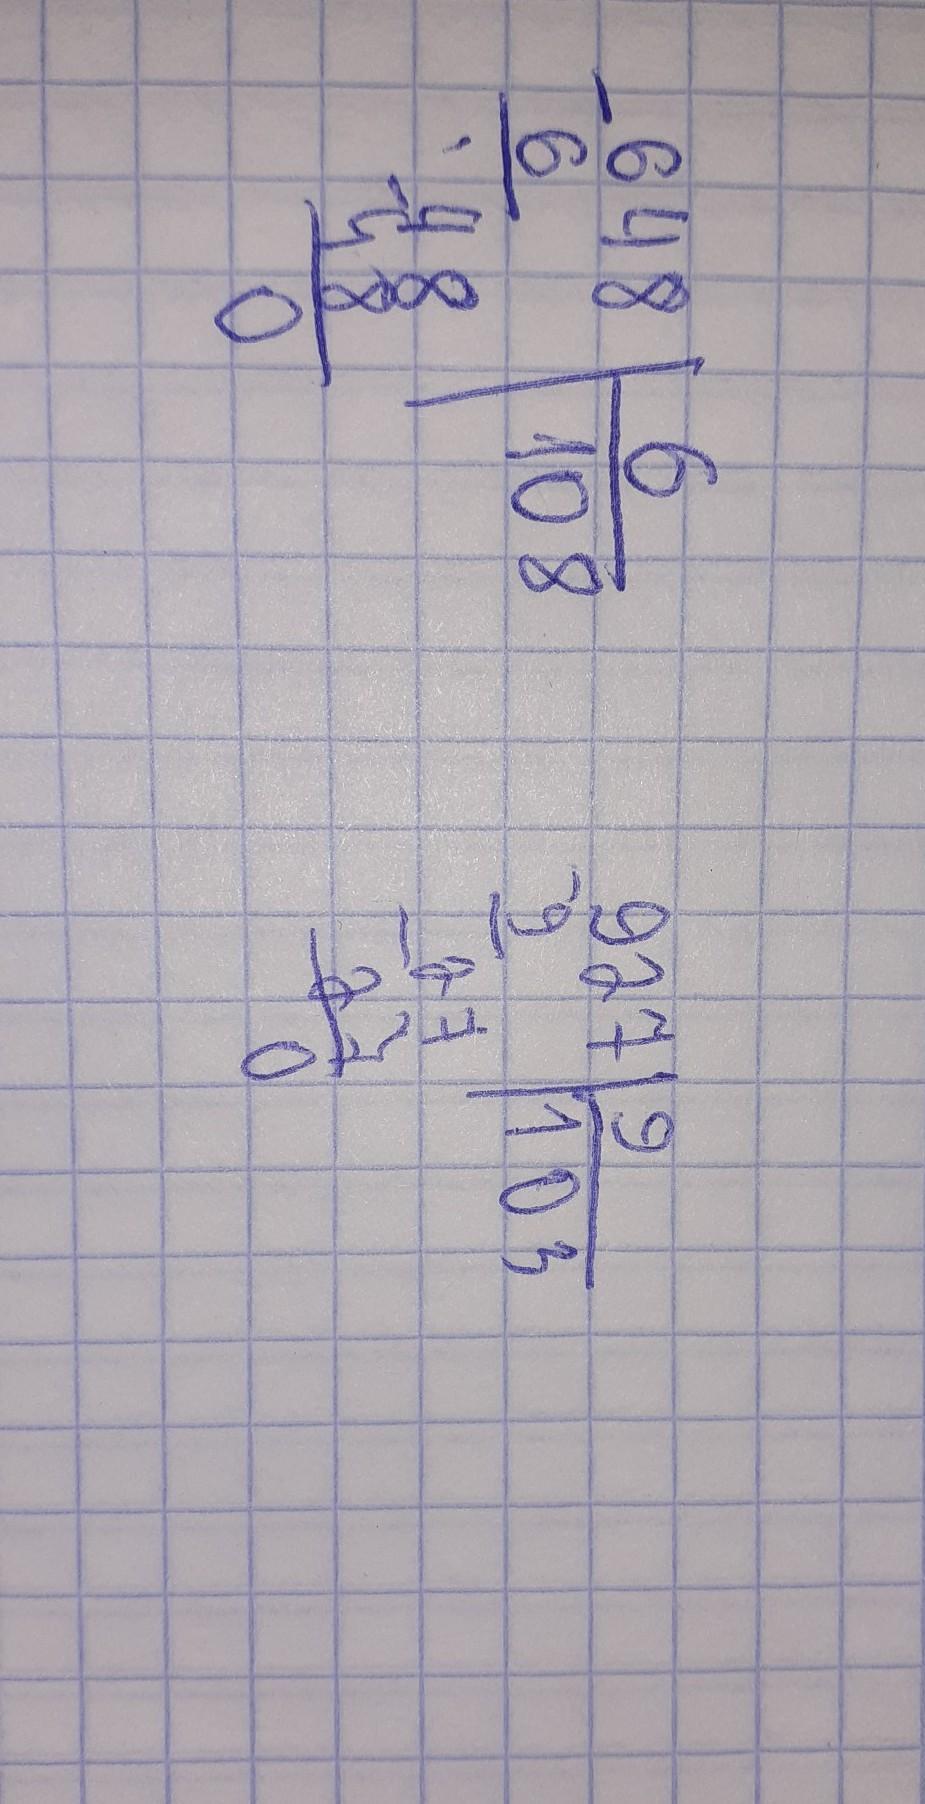 648 6
6 108
48
48
0
927 9
9 103
27
27
0